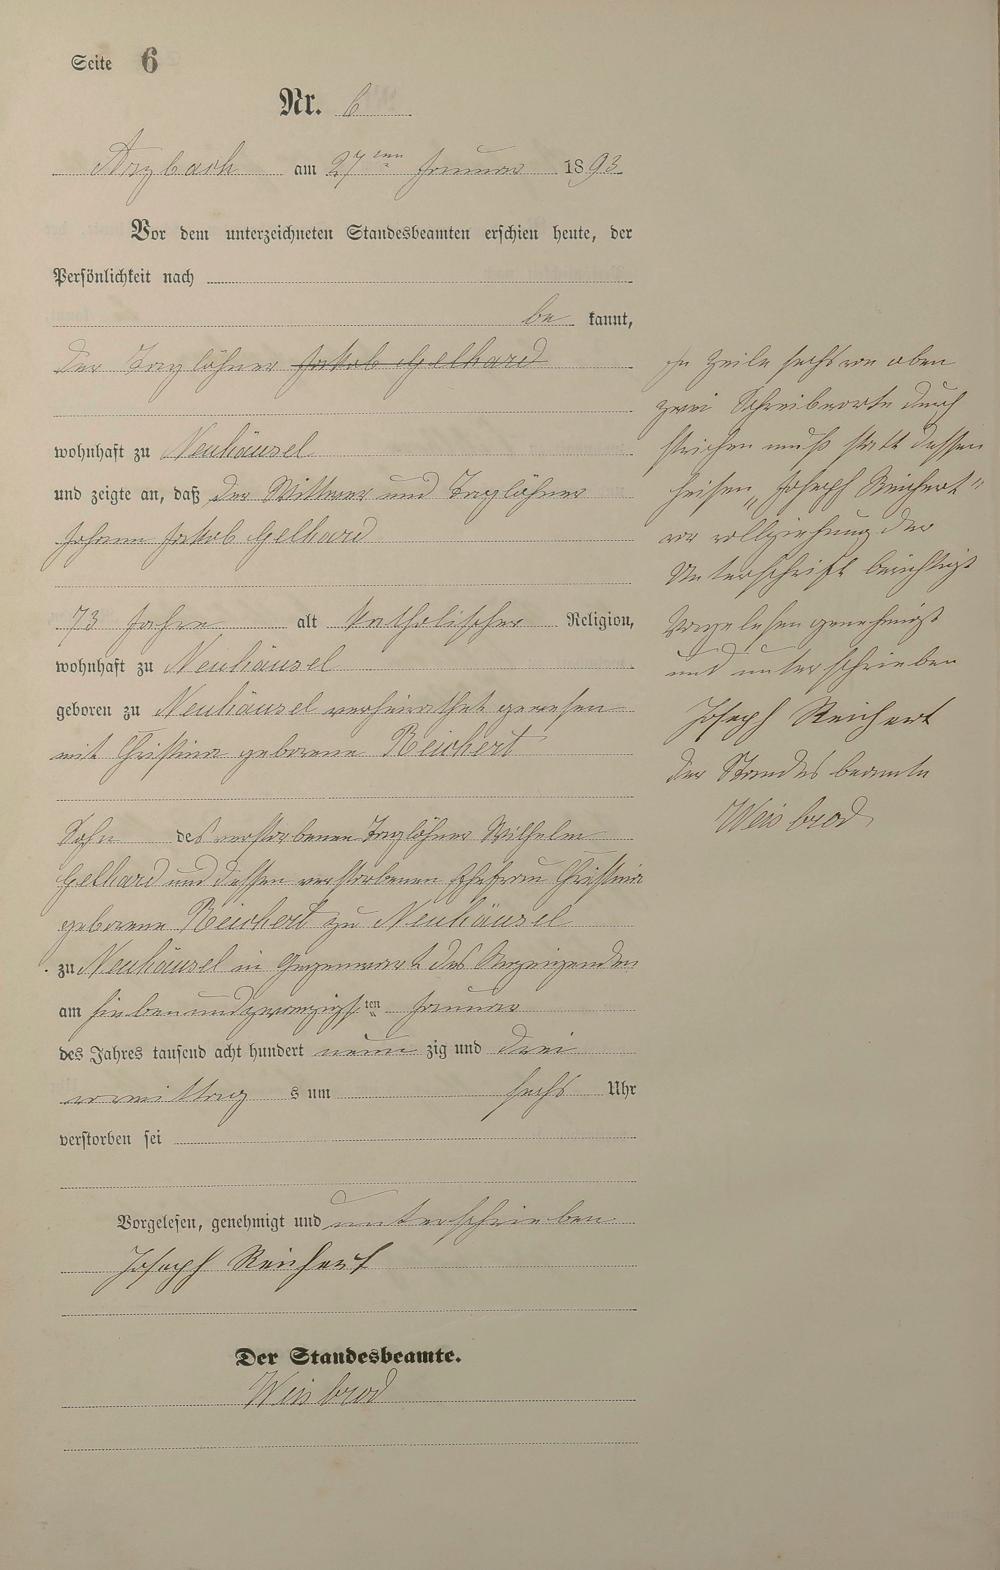 Seite 6
Nr. 6
Arzbach am 27ten Januar 1893
Vor dem unterzeichneten Standesbeamten erschien heute, der
Persönlichkeit nach
be kannt,
der Taglöhner Jakob Gelhard
wohnhaft zu Neuhäusel
und zeigte an, daß der Wittwer und Taglöhner
Johann Jakob Gelhard
73 Jahre alt katholischer Religion,
wohnhaft zu Neuhäusel
geboren zu Neuhäusel verheirathet gewesen
mit Christina geborene Reichert
Sohn des verstorbenen Taglöhner Wilhelm
Gelhard und dessen verstorbenen Ehefrau Christina
geborene Reichert zu Neuhäusel
zu Neuhäusel in Gegenwart des Anzeigenden
am siebenundzwanzigsten Januar
des Jahres tausend acht hundert neun zig und drei
vormittag s um sechs Uhr
verstorben sei
Vorgelesen, genehmigt und unterschrieben
Joseph Reichert
Der Standesbeamte.
Weisbrod
In Zeile sechs von oben
zwei Schreibworte durch
strichen muß statt dessen
heisen „Joseph Reichert"
vor vollziehung der
Unterschrift berichtigt
Vorgelesen genehmigt
und unterschrieben
Joseph Reichert
der Standesbeamte
Weisbrod